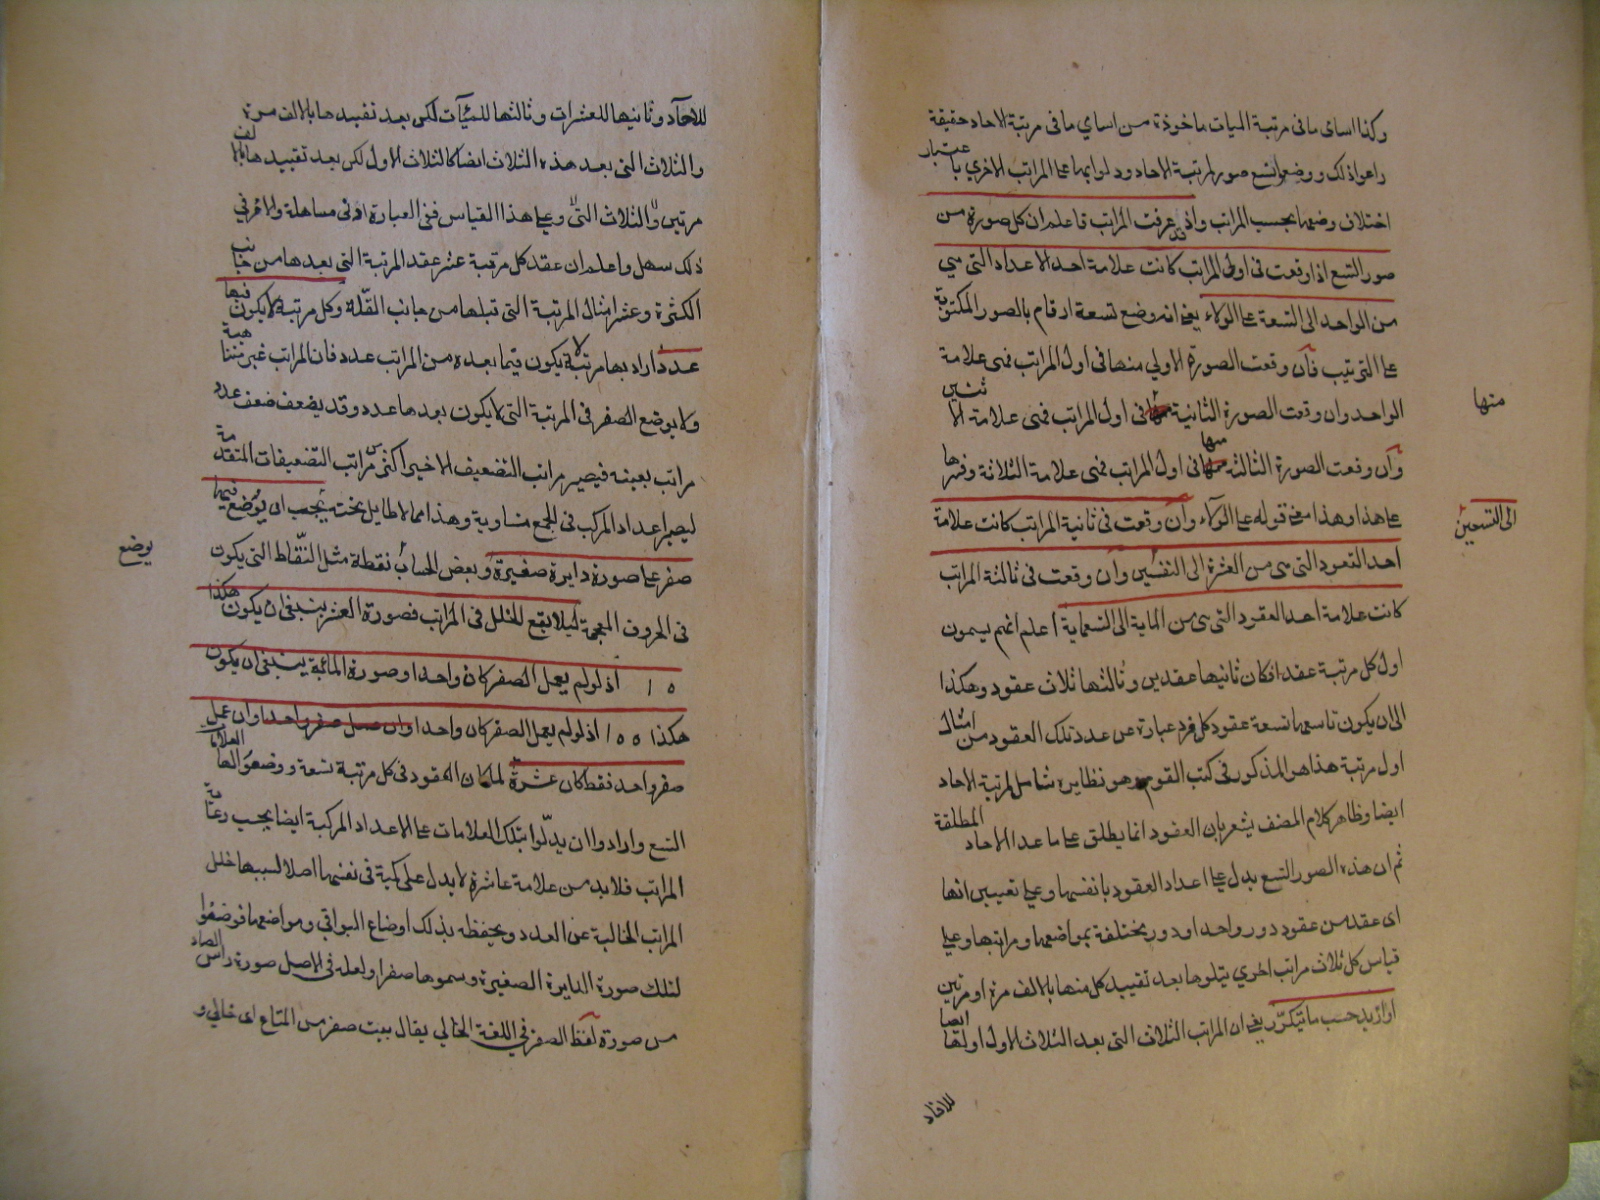 وكذا اسامى ما فى مرتبة الميات ماخوذة من اسامي ما فى مرتبة الاحاد حقيقة
راعوا ذلك ووضعوا تسع صور لمرتبة الاحاد ودلوا بها على المراتب الاخري باعتبار
اختلاف وضعها بحسب المراتب واذ قد عرفت المراتب فاعلم ان كل صورة من
صور التسع اذا وقعت فى اول المراتب كانت علامة احد الاعداد التى هى
من الواحد الى التسعة على الولاء يعنى انه وضع تسعة ارقام بالصور المكتوبة
على الترتيب فان وقعت الصورة الاولي منها فى اول المراتب فهى علامة
الواحد وان وقعت الصورة الثانية منها فى اول المراتب فهى علامة الاثنين
وان وقعت الصورة الثالثة منها فى اول المراتب فهى علامة الثلاثة وقس
على هذا وهذا معنى قوله على الولاء وان وقعت فى ثانية المراتب كانت علامة
احد العقود التى هى من العشرة الى التسعين وان وقعت فى ثالثة المراتب
كانت علامة احد العقود التى هى من الماية الى التسعماية اعلم انهم يسمون
اول كل مرتبة عقدا فكان ثانيها عقدين وثالثها ثلاث عقود وهكذا
الى ان يكون تاسعها تسعة عقود كل فرد عبارة عن عدد تلك العقود من امثال
اول مرتبة هذا هو المذكور فى كتب القوم وهو نظايره شامل لمرتبة الاحاد
ايضا وظاهر كلام المصنف يشعر بان العقود انما يطلق على ما عدا الاحاد المطلقة
ثم ان هذه الصور التسع يدل على اعداد العقود بانفسها وعلى تعيين انها
اى عقد من عقود دور واحد او دور مختلفة بمواضعها ومراتبها وعلي
قياس كل ثلاث مراتب اخري يتلوها بعد تقييد كل منها بالالف مرة او مرتين
او ازيد حسب ما يتكرر يعنى ان المراتب الثلاث التى بعد الثلاث الاول اولها ايضا
منها
الى التسعين
للاحاد
للاحاد وثانيها للعشرات وثالثها للميآت لكن بعد تقييدها بالالف مرة
والثلاث التى بعد هذه الثلاث ايضا كالثلاث الاول لكن بعد تقييدها بالالف
مرتين والثلاث التى وعلى هذا القياس ففى العبارة ادنى مساهلة والامر في
ذلك سهل واعلم ان عقد كل مرتبة عشر عقد المرتبة التى بعدها من جانب
الكثرة وعشر امثال المرتبة التى قبلها من جانب القلة وكل مرتبة لا يكون فيها
عدد اراد بها مرتبة لا يكون فيما بعده من المراتب عدد فان المراتب غير متناهية
ولا يوضع الصفر فى المرتبة التى لا يكون بعدها عدد وقد يضعف ضعف عدد
مراتب بعينه فيصير مراتب التضعيف الاخير اكثر من مراتب التضعيفات المتقدمة
ليصير اعداد المركب فى الجمع متساوية وهذا مما لا طايل تحته يجب ان يوضع فيها
صفر على صورة دايرة صغيرة وبعض الحساب نقطة مثل النقاط التى يكون
فى الحروف المعجمة ليلا يقع للخلل فى المراتب فصورة العشر ينبغى ان يكون هكذا
١٥ اذ لو لم يعمل الصفر كان واحدا وصورة المائة ينبغى ان يكون
هكذا ١٥٥ اذ لو لم يعمل الصفر كان واحدا وان عمل صفر واحدا وان عمل
صفر واحد فقط كان عشرة لما كان العقود فى كل مرتبة تسعة ووضعوا لها العلامات
التسع وارادوا ان يدلوا بتلك العلامات على الاعداد المركبة ايضا بحسب رعاية
المراتب فلابد من علامة عاشرة لا يدل على كمية فى نفسها اصلا لسببها خلل
المراتب الخالية عن العدد ويحفظ بذلك اوضاع البواقي ومواضعها فوضعوا
لتلك صورة الدايرة الصغيرة وسموها صفرا ولعله فى الاصل صورة راس الصاد
من صورة لفظ الصفر في اللغة الخالي يقال بيت صفر من المتاع اى خالي و
يوضع